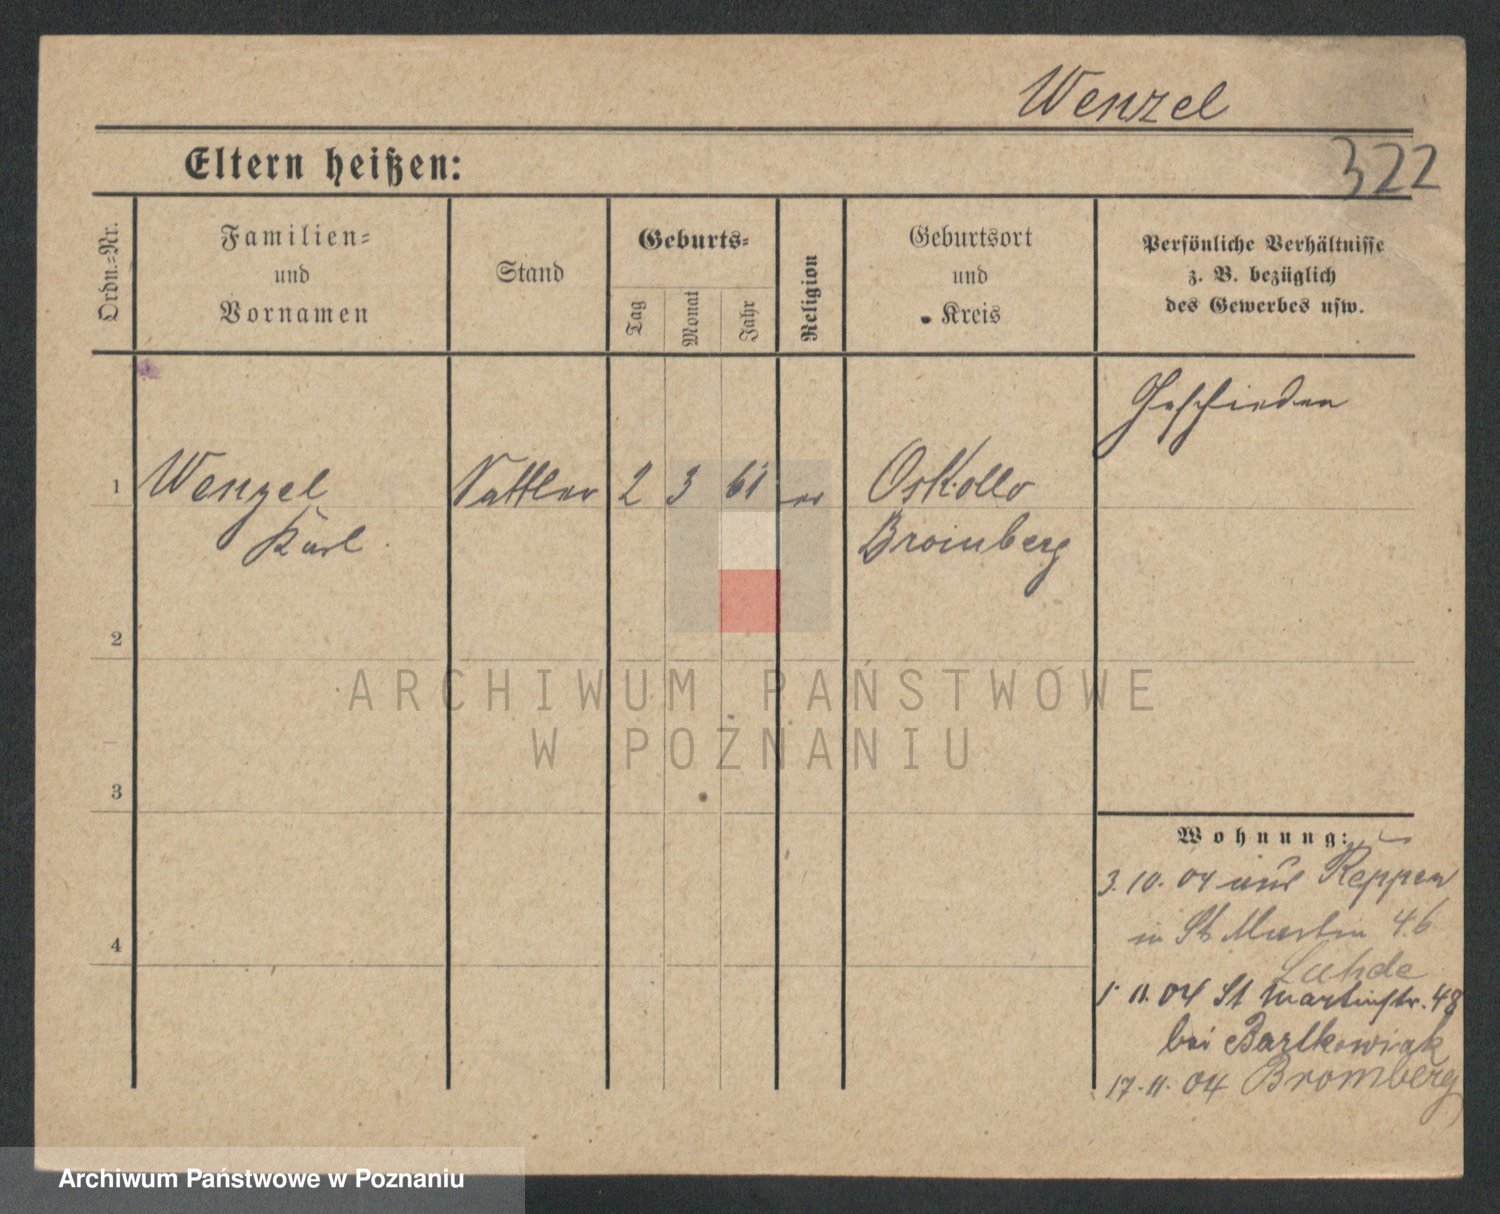 Wenzel
322
Eltern heißen:
Ordn.-Nr.
Familien-
und
Vornamen
Stand
Geburts-
Tag
Monat
Jahr
Religion
Geburtsort
und
Kreis
Persönliche Verhältnisse
z. B. bezüglich
des Gewerbes usw.
Geschieden
1 Wenzel Sattler 2 3 61 ev
Karl Bromberg
2
3
4
ARCHIWUM PAŃSTWOWE
W POZNANIU
Wohnung:
3. 10. 04 aus Reppen
in St. Martin 46
1. 11. 04 St Martinstr. 48
bei Bartkowiak
17. 11. 04 Bromberg
Archiwum Państwowe w Poznaniu